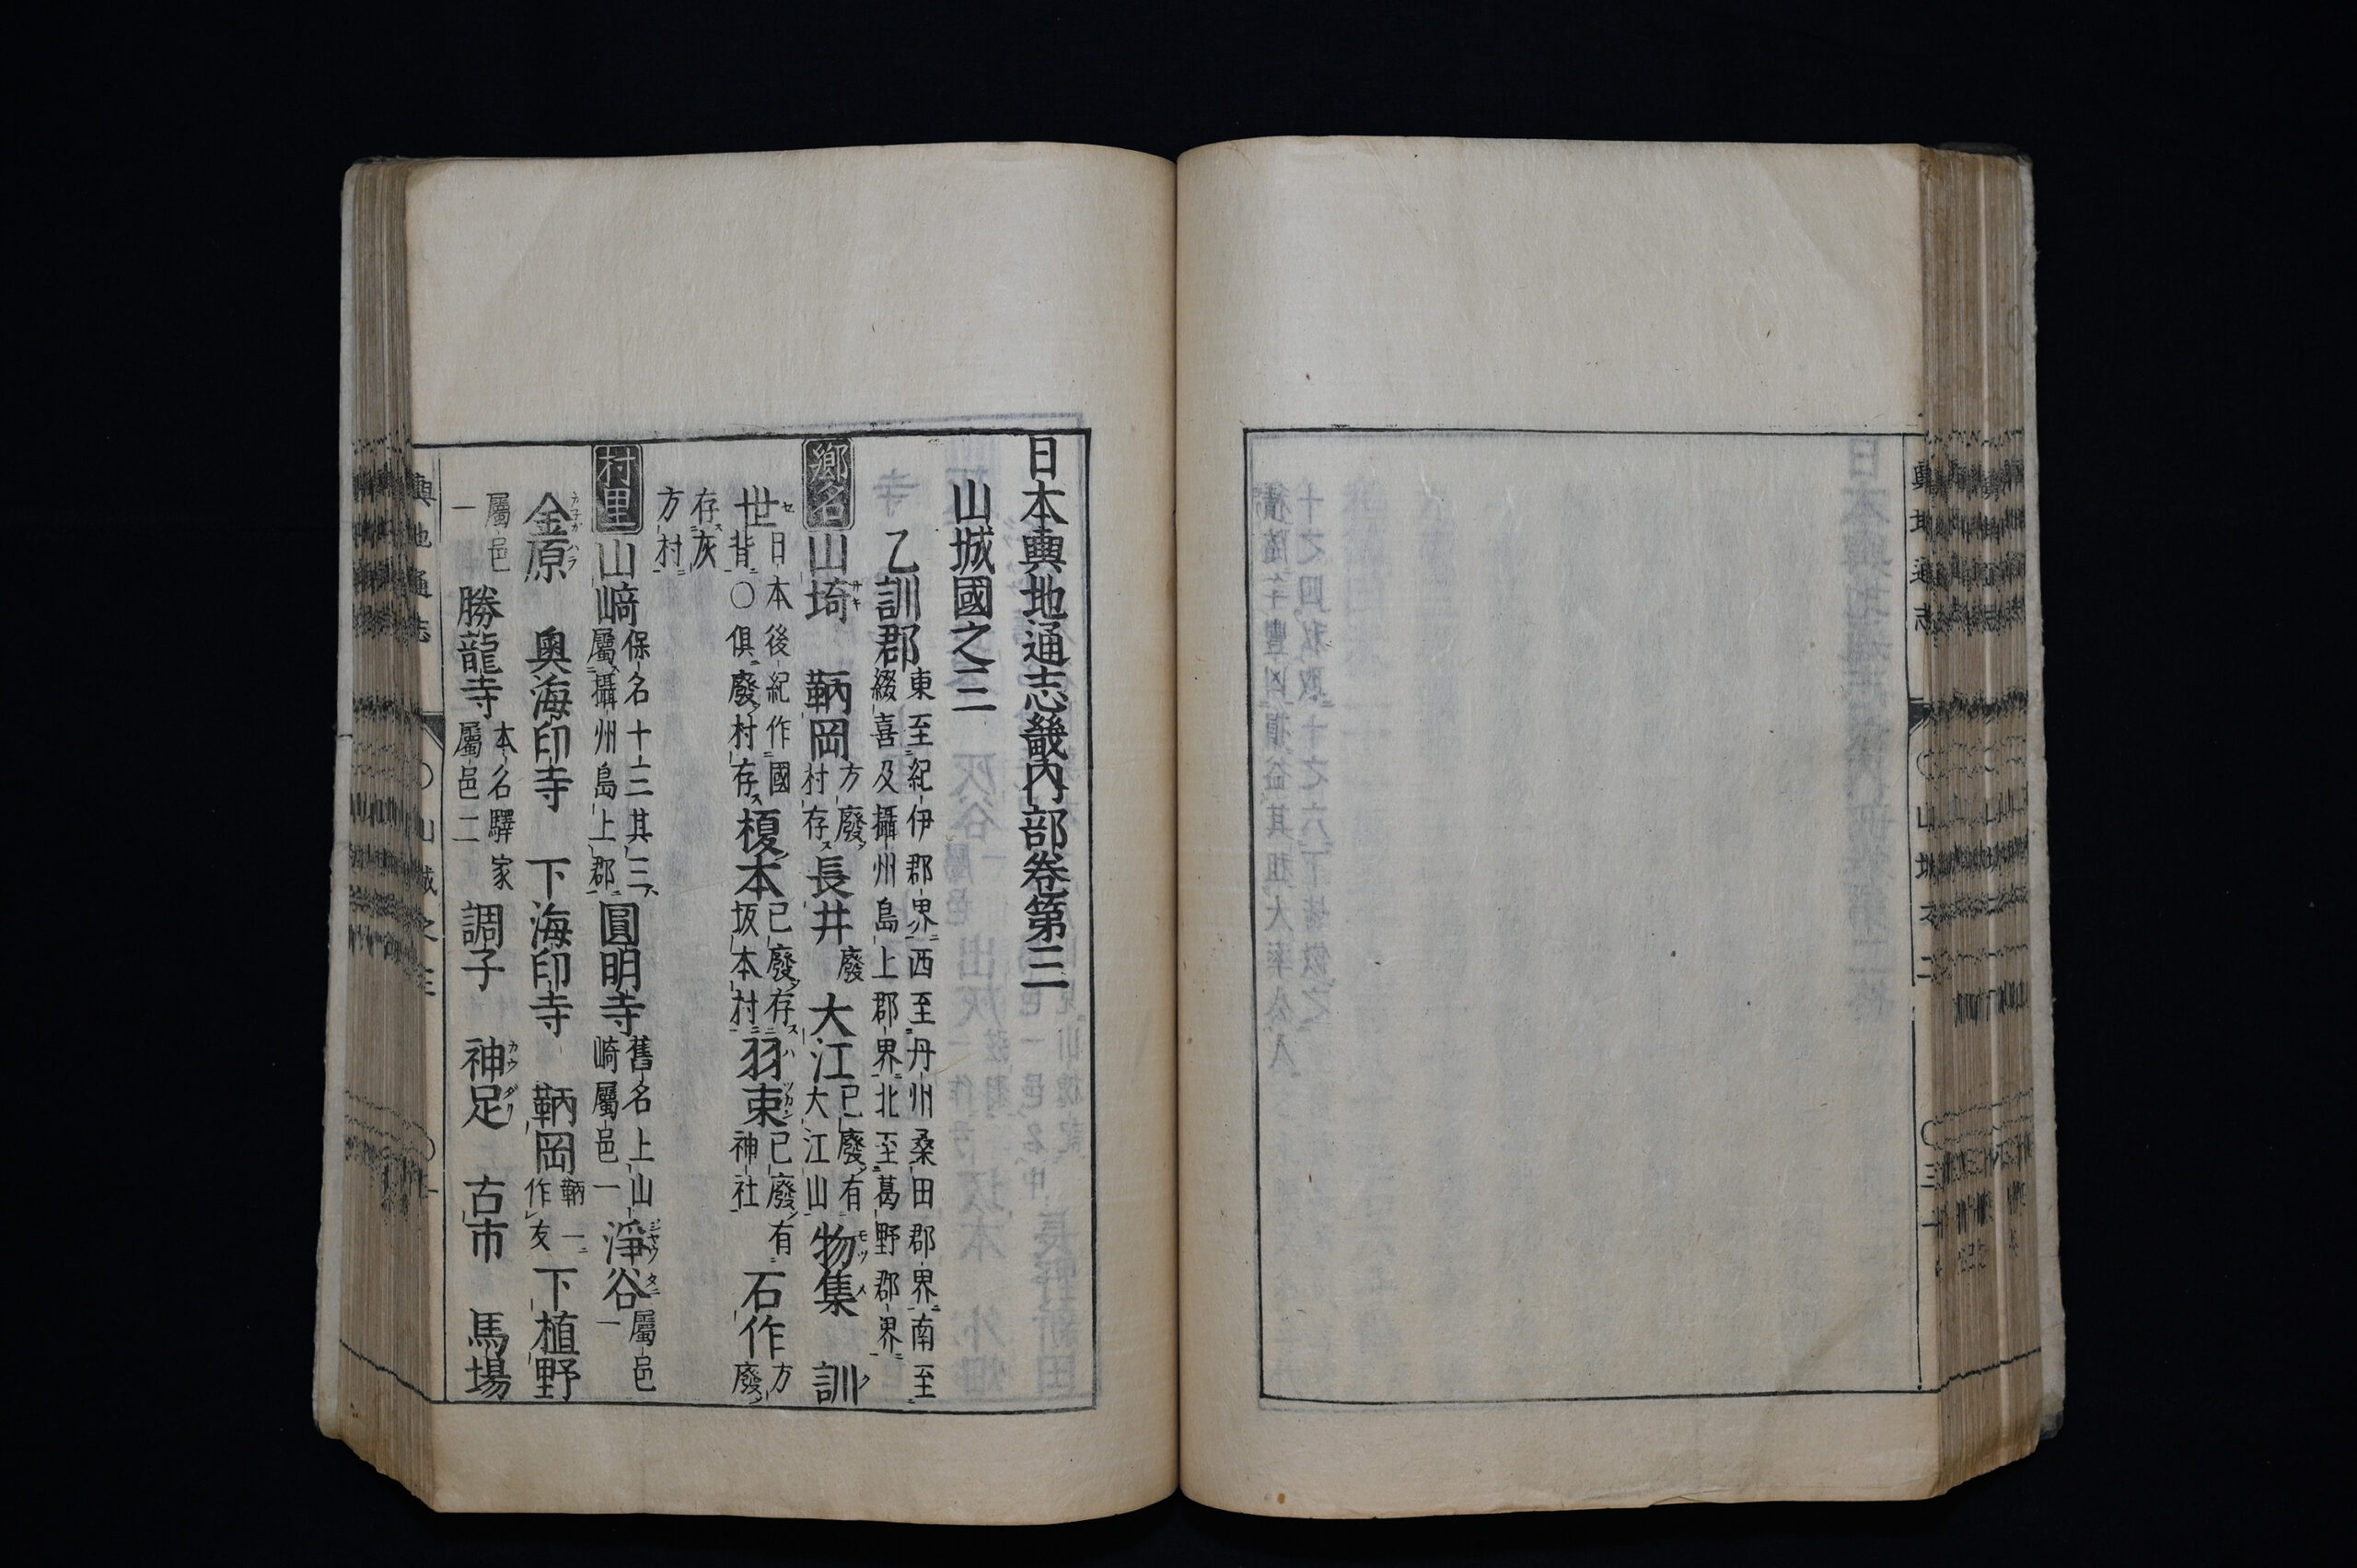 日本輿地通志畿內部卷第三
山城國之三
乙訓郡 東至紀伊郡界西至丹州桑田郡界南至綴喜及攝州島上郡界北至葛野郡界
鄉名 山埼 鞆岡 方廢村存 長井 廢 大江 已廢有大江山 物集 訓
世 日本後紀作國背〇俱廢村存 榎本 已廢存坂本村 羽束 已廢有神社 石作 方廢
存灰方村
村里 山崎 保名十三其三屬攝州島上郡 圓明寺 舊名上山崎屬邑一 淨谷 屬邑一
金原 奧海印寺 下海印寺 鞆岡 鞆一作友 下植野
屬邑一 勝龍寺 本名驛家屬邑二 調子 神足 古市 馬場